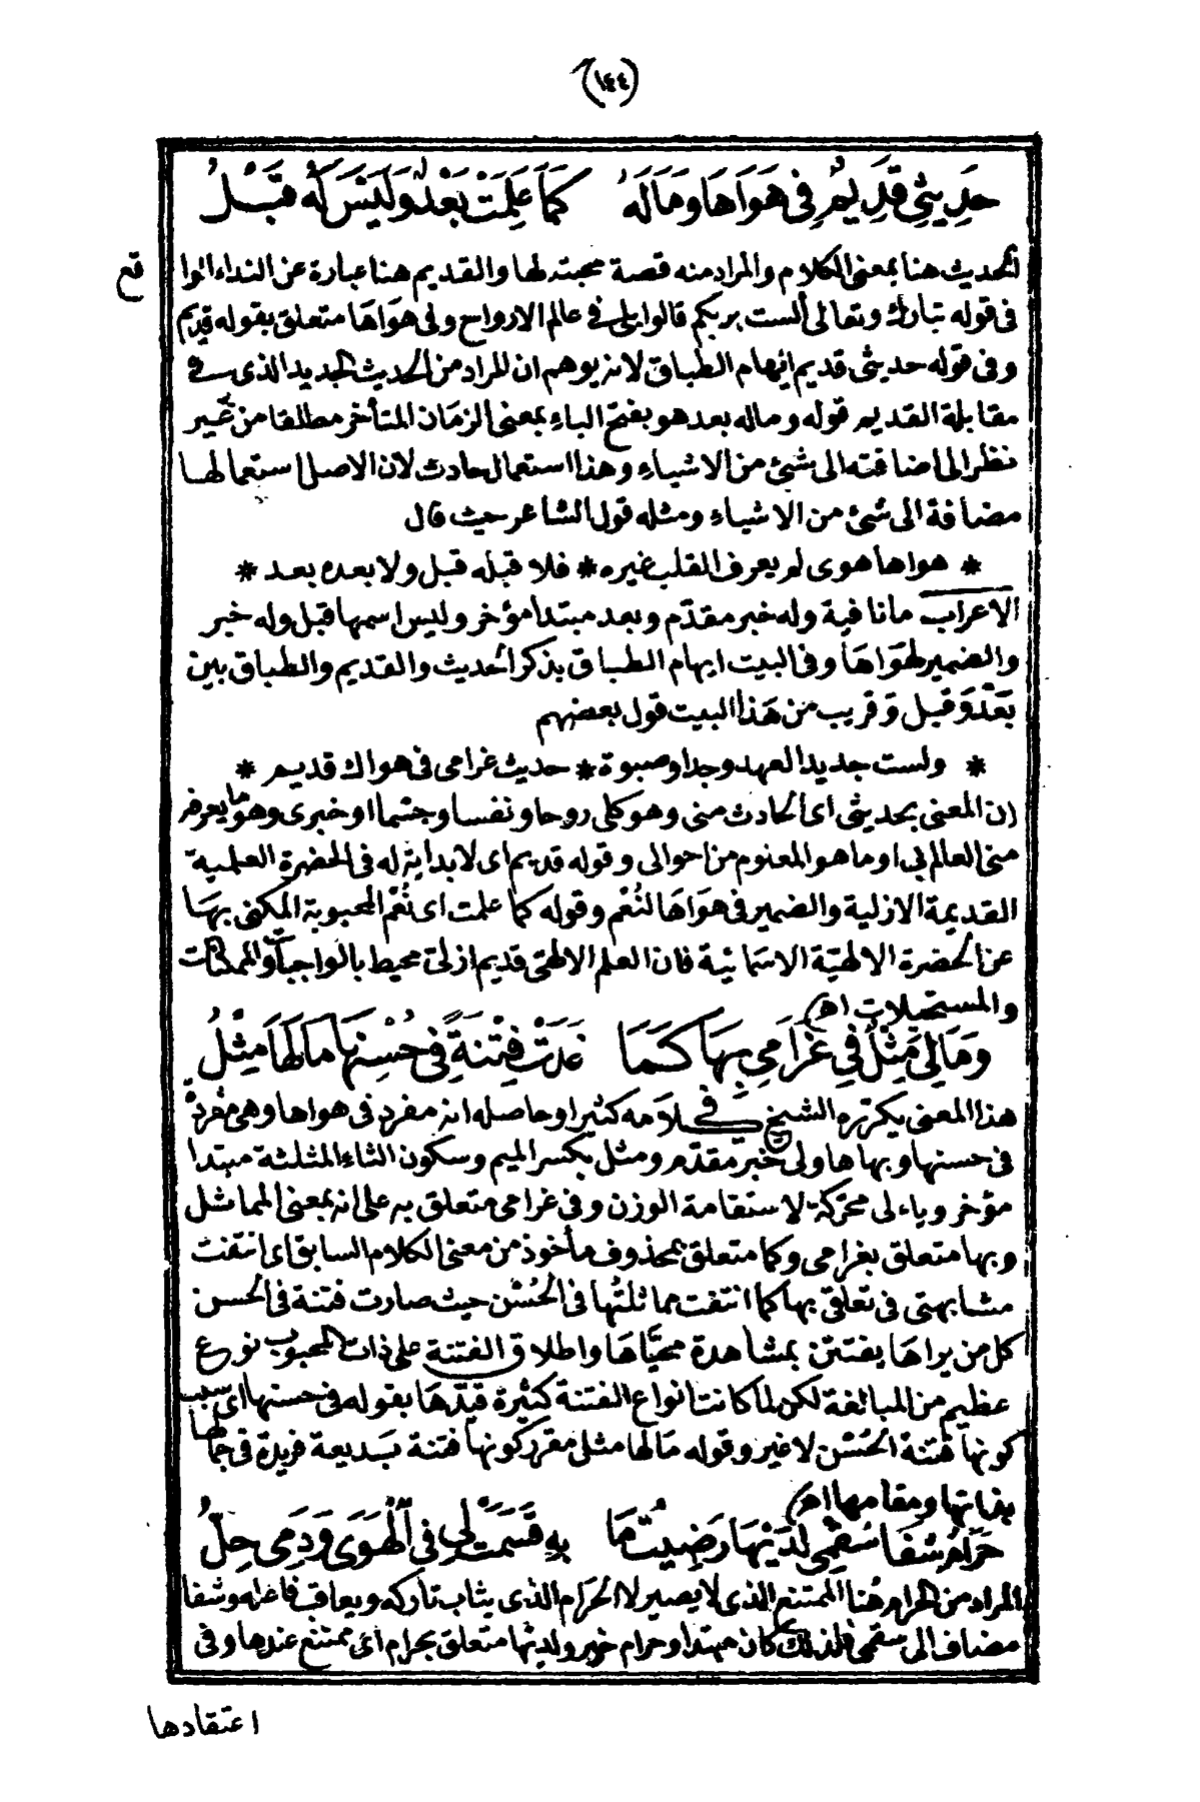 (١٤٤)
حَدِيثِي قَدِيمٌ فِي هَوَاهَا وَمَا لَهُ كَمَا عَلِمَتْ بَعْدٌ وَلَيْسَ لَهُ قَبْلُ
الحديث هنا بمعنى الكلام والمراد منه قصة محبته لها والقديم هنا عبارة عن النداء الوا
قع
فى قوله تبارك وتعالى ألست بربكم قالوا بلى فى عالم الارواح وفى هواها متعلق بقوله قديم
وفى قوله حديثى قديم ايهام الطباق لانه يوهم ان المراد من الحديث الجديد الذى فى
مقابلة القديم قوله وماله بعد هو بفتح الباء بمعنى الزمان المتأخر مطلقا من غير
نظر الى اضافته الى شئ من الاشياء وهذا استعمال حادث لان الاصل استعمالها
مضافة الى شئ من الاشياء ومثله قول الشاعر حيث قال
* هواها هوى لم يعرف القلب غيره * فلا قبله قبل ولا بعده بعد *
الاعراب ما نافية وله خبر مقدّم وبعد مبتدا مؤخر وليس اسمها قبل وله خبر
والضمير لهواها وفى البيت ايهام الطباق بذكر الحديث والقديم والطباق بين
بَعْدُ وَقبل وَقريب من هَذا البيت قول بعضهم
* ولست جديد العهد وجدا وصبوة * حديث غرامى فى هواك قديم *
(ن) المعنى بحديثى اى الحادث منى وهو كلى روحا ونفسا وجسما او خبرى وهو ما يعرفه
منى العالم بى او ما هو المعلوم من احوالى وقوله قديم اى لا بداية له فى الحضرة العلمية
القديمة الازلية والضمير فى هَوَاهَا لنُعْم وقوله كما علمت اى نُعْم المحبوبة المكنى بها
عن الحضرة الالهيّة الاسمائية فان العلم الالهىّ قديم ازلىّ محيط بالواجبات والممكنات
والمستحيلات اه)
وَمَا لِيَ مِثْلٌ فِي غَرَامِي بِهَا كَمَا غَدَتْ فِتْنَةً فِي حُسْنِهَا مَا لَهَا مِثْلُ
هذا المعنى يكرّره الشيخ فى كلامه كثيرا وحاصله انه مفرد فى هواها وهى مفردة
فى حسنها وبهاها ولى خبر مقدّم ومثل بكسر الميم وسكون الثاء المثلثة مبتدا
مؤخر وياء لى محرّكة لاستقامة الوزن وفى غرامى متعلق به على انه بمعنى المماثل
وبها متعلق بغرامى وكما متعلق بمحذوف مأخوذ من معنى الكلام السابق اى انتفت
مشابهتى فى تعلقى بها كما انتفت مماثلتها فى الحُسْن حيث صارت فتنة فى الحسن
كل من يراها يفتتن بمشاهدة محيّاها واطلاق الفتنة على ذات المحبوب نوع
عظيم من المبالغة لكن لما كانت انواع الفتنة كثيرة قيّدها بقوله فى حسنها اى سبب
كونها فتنة الحُسْن لا غير وقوله مالها مثل مقرر كونها فتنة بَديعة فريدة فى جمالها
بذاتها ومقامها اه)
حَرَامٌ شِفَا سُقْمِي لَدَيْهَا رَضِيتُ مَا بِهِ قَسَمَتْ لِي فِي الْهَوَى وَدَمِي حِلُّ
المراد من الحرام هُنا الممتنع الذى لا يصير لا الحرَام الذى يثاب تاركه ويعاقب فاعله وشفا
مضاف الى سقمى فلذلك كان مبتدا وحرام خبر ولديها متعلق بحرام اى ممتنع عندها وفى
اعتقادها